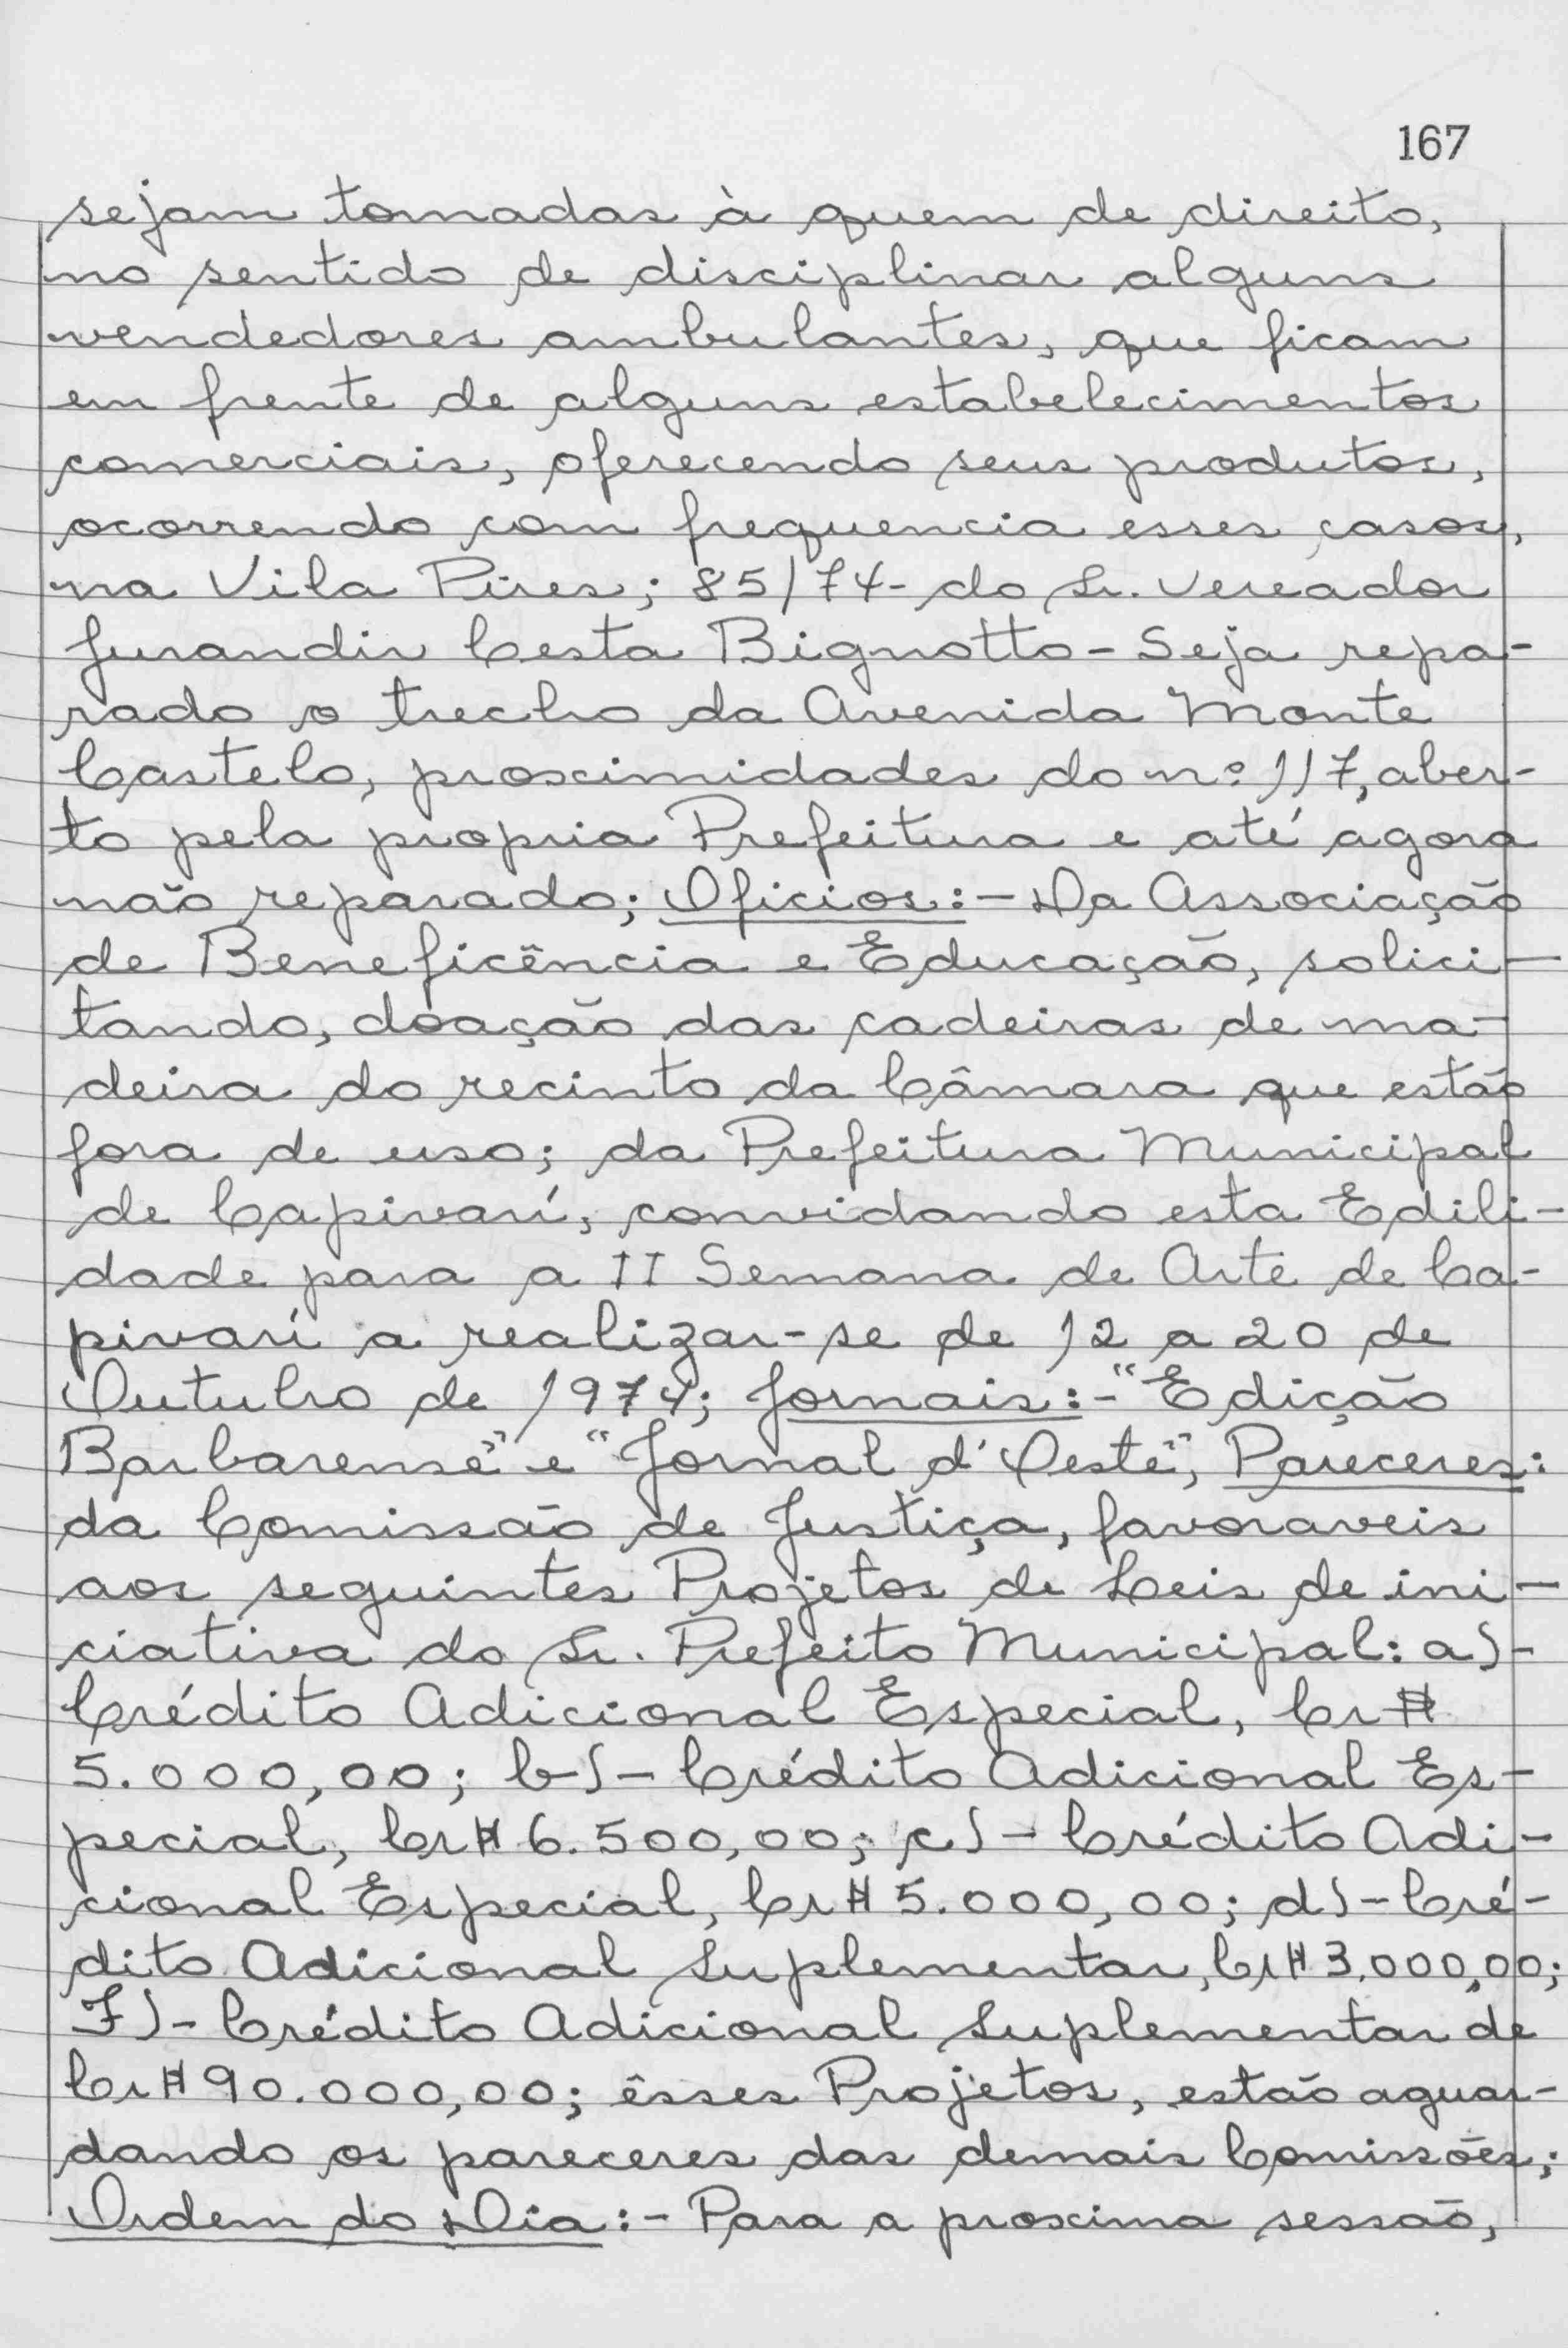 167
sejam tomadas à quem de direito,
no sentido de disciplinar alguns
vendedores ambulantes, que ficam
em frente de alguns estabelecimentos
comerciais, oferecendo seus produtos,
ocorrendo com frequencia esses casos,
na Vila Pires; 85/74- do Sr. Vereador
Jurandir Cesta Bignotto - Seja repa-
rado o trecho da Avenida Monte
Castelo, proximidades do nº 117, aber-
to pela propria Prefeitura e até agora
não reparado; Oficios:- Da Associação
de Beneficência e Educação, solici-
tando, doação das cadeiras de ma-
deira do recinto da Câmara que estão
fora de uso; da Prefeitura Municipal
de Capivarí, convidando esta Edili-
dade para a II Semana de Arte de Ca-
pivarí a realizar-se de 12 a 20 de
Outubro de 1974; Jornais:- "Edição
Barbarense" e "Jornal d'Oeste", Pareceres:
da Comissão de Justiça, favoraveis
aos seguintes Projetos de Leis de ini-
ciativa do Sr. Prefeito Municipal: a)-
Crédito Adicional Especial, Cr$
5.000,00; b)- Crédito Adicional Es-
pecial, Cr$ 6.500,00; c)- Crédito Adi-
cional Especial, Cr$ 5.000,00; d)- Cré-
dito Adicional Suplementar, Cr$ 3.000,00;
F)- Crédito Adicional Suplementar de
Cr$ 90.000,00; êsses Projetos, estão aguar-
dando os pareceres das demais Comissões;
Ordem do Dia:- Para a proxima sessão,